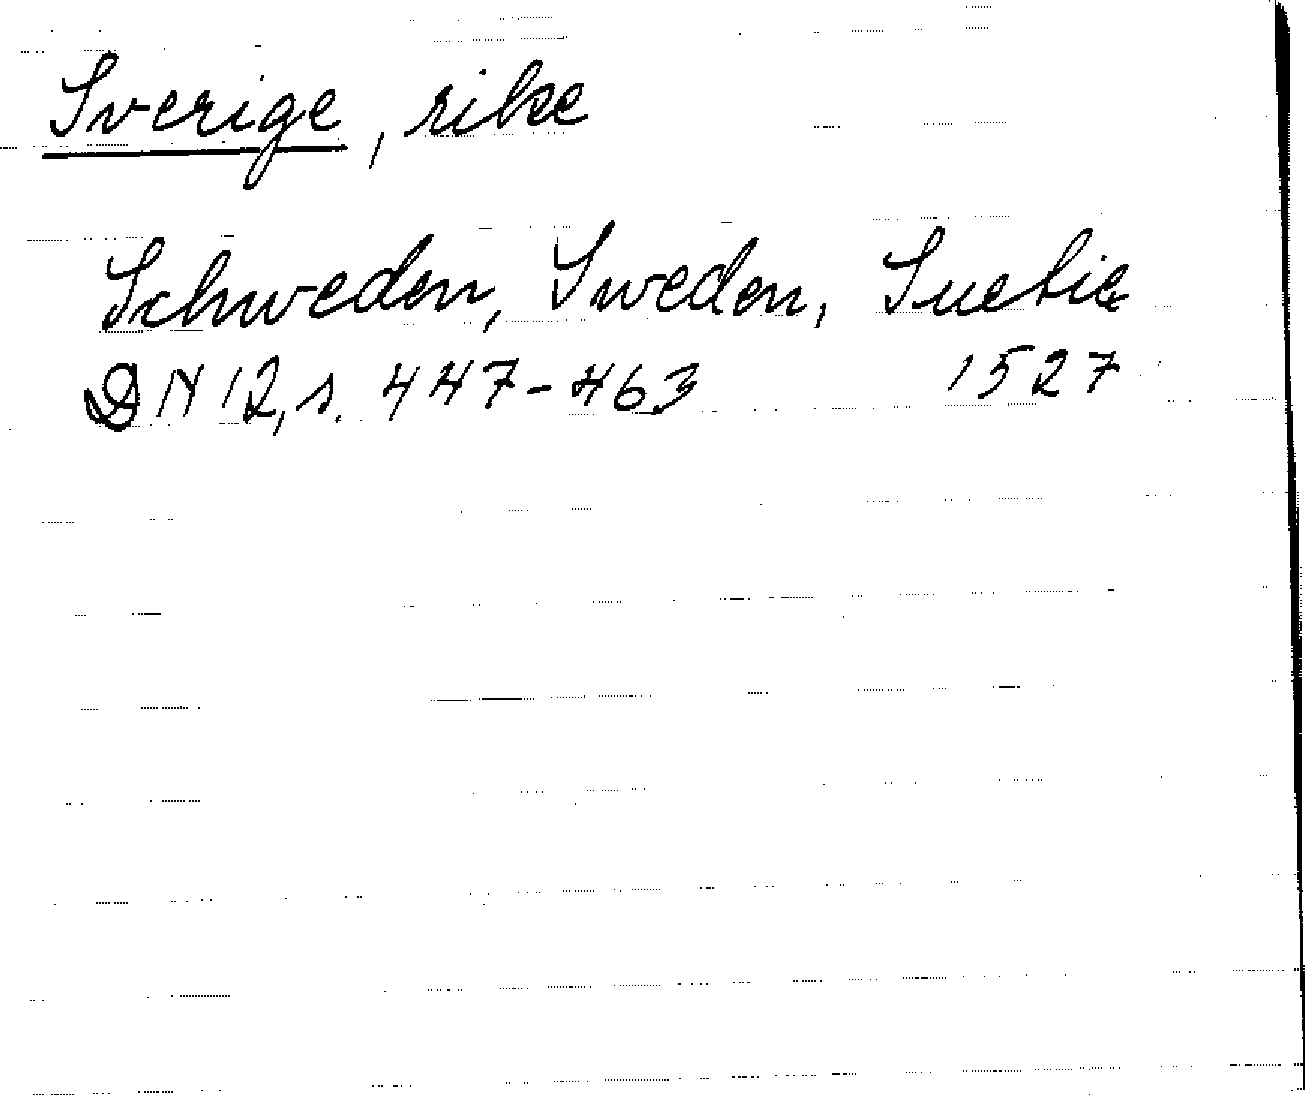 Sverige, rike
Schweden, Sweden, Suetie
DN 12, s. 447-463 1527